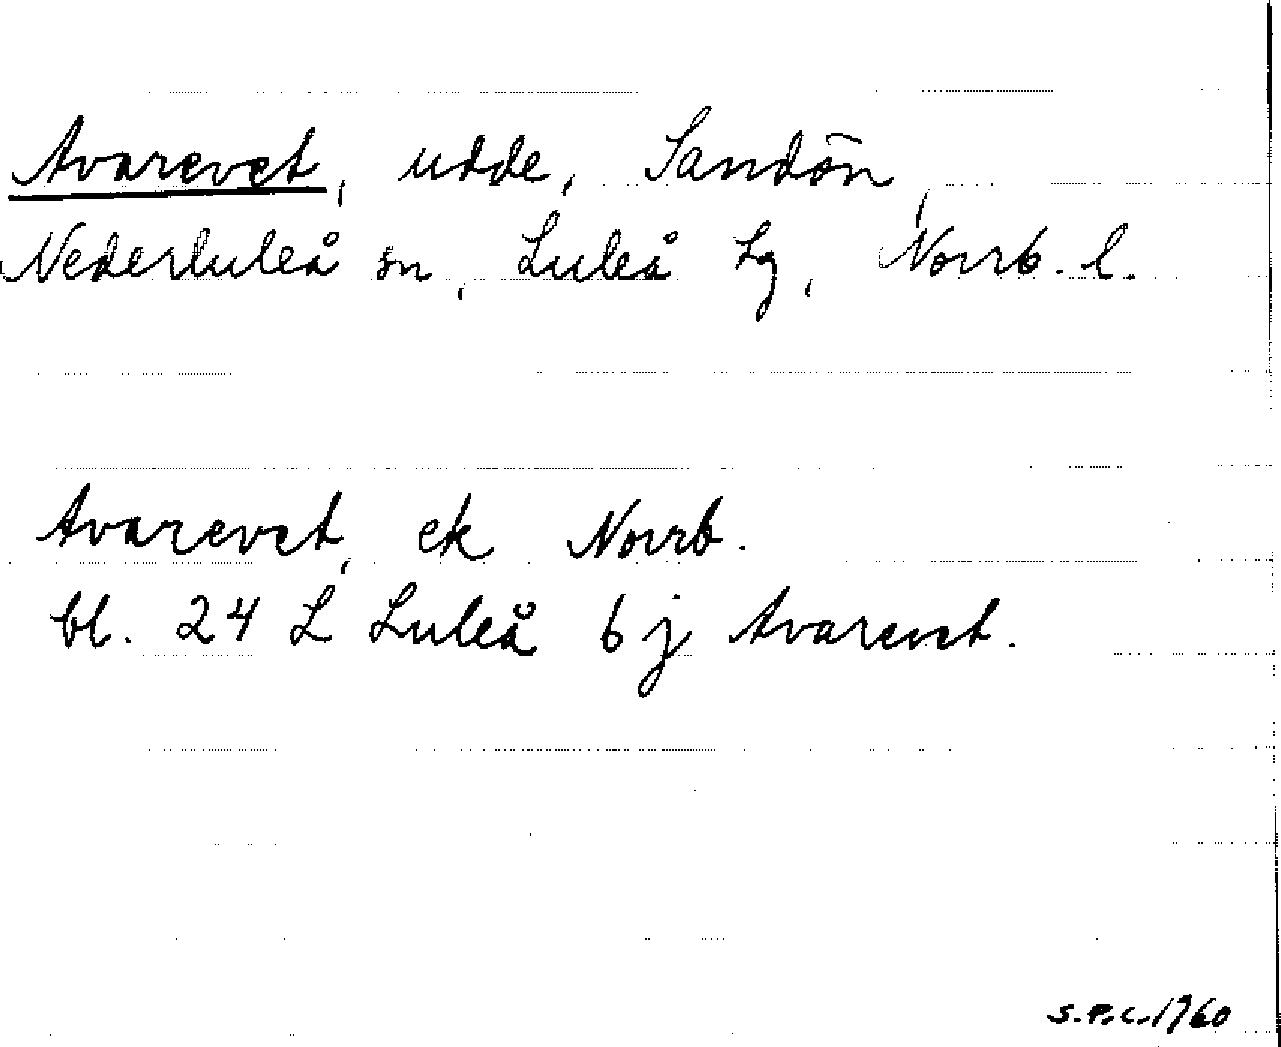 Avarevet, udde, Sandön,
Nederluleå sn, Luleå tg, Norrb. l.
Avarevet, ek Norrb.
bl. 24 L Luleå 6 j Avarevet.
S.P.C. 1960